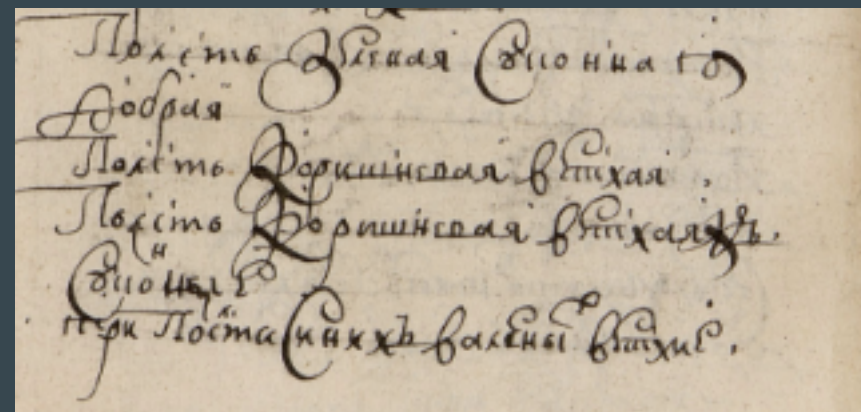 Полсть суконная
добрая
Полсть коришневая ветхая .
Полсть коришневая ветхая
суконные
три полста синихъ валеные ветхие .